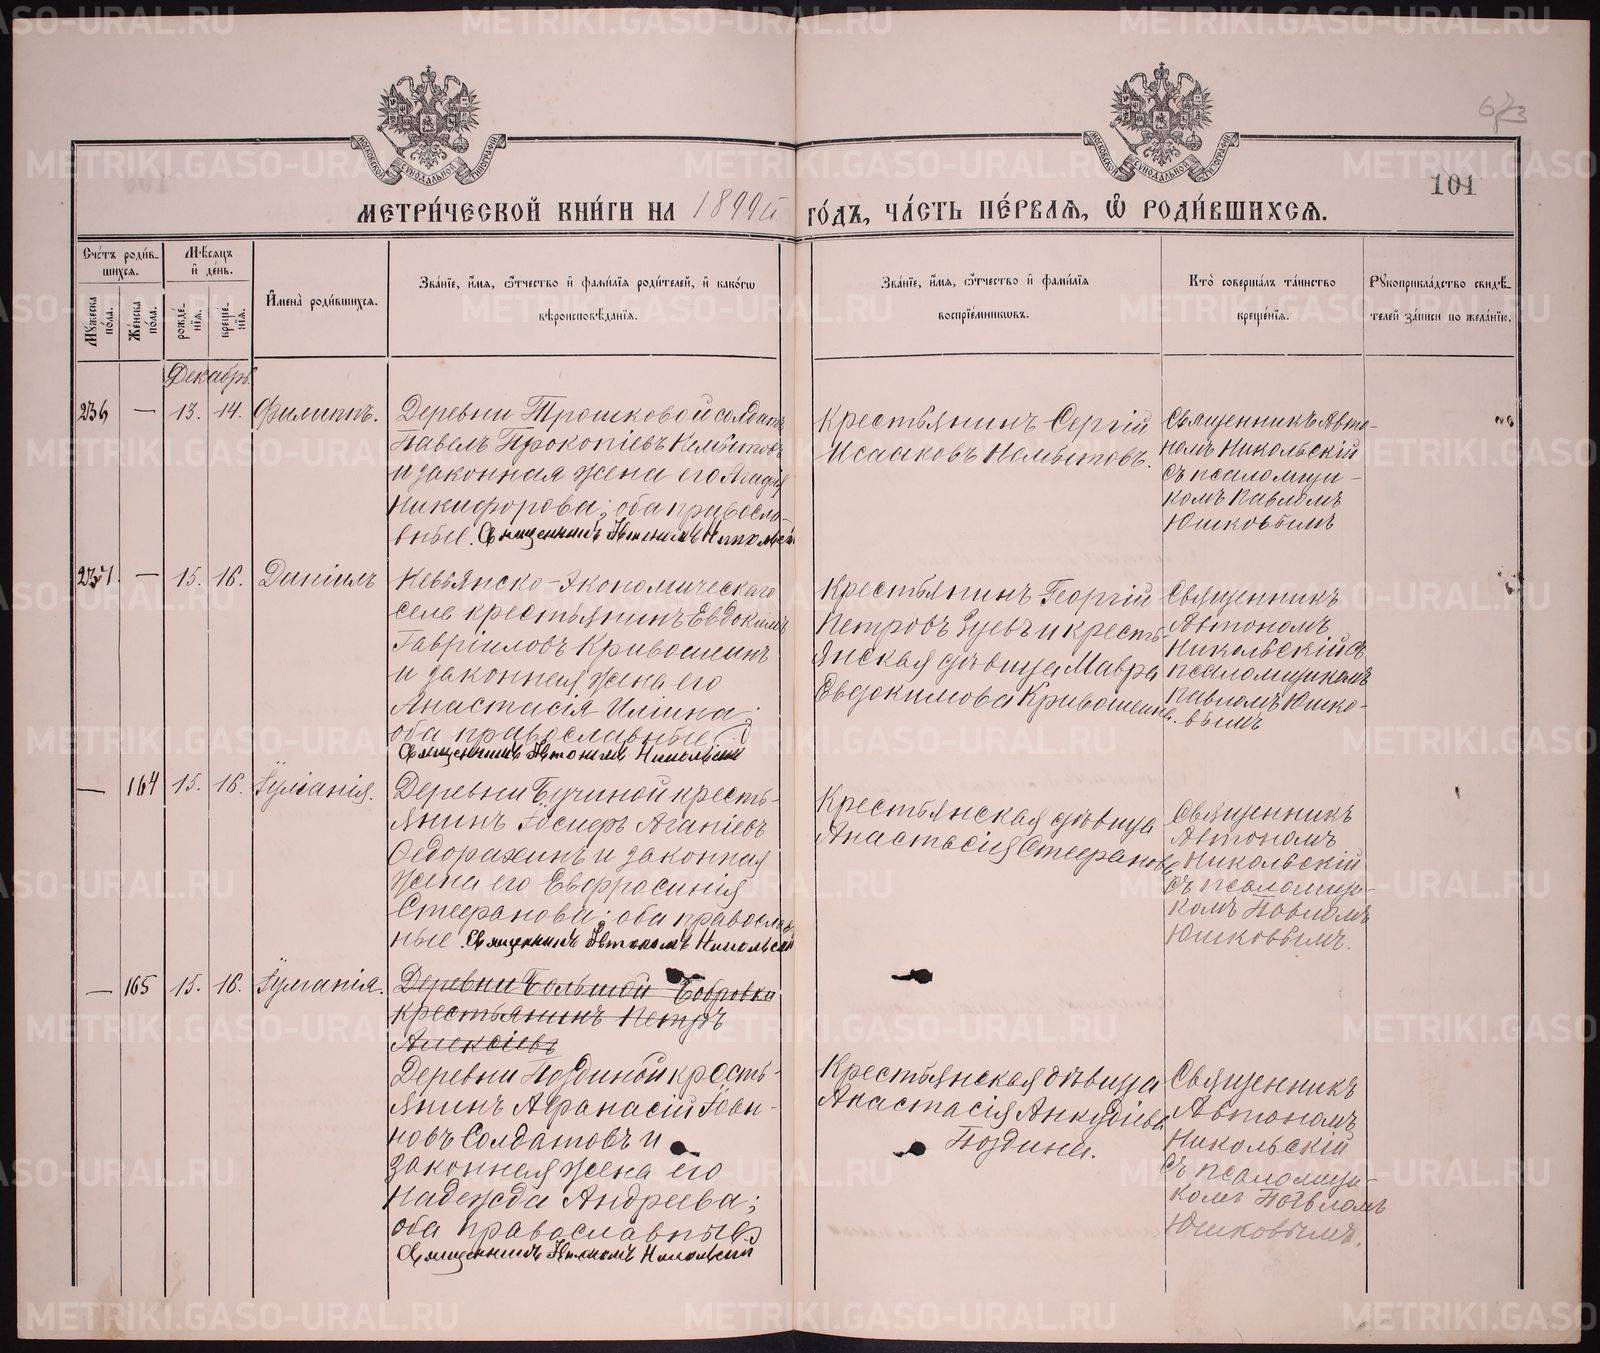 101
МЕТРИ́ЧЕСКОЙ КНИ́ГИ НА 1899й ГО́ДЪ, ЧА́СТЬ ПЕ́РВАЯ, Ѽ РОДИ́ВШИХСЯ.
Сче́тъ роди́в-
шихся.
Мѣ́сяцъ
и҆ де́нь.
И҆мена̀ роди́вшихся.
Зва́нїе, и҆́мя, ѻ҆́тчество и҆ фами́лїя роди́телей, и҆ како́гѡ
вѣроисповѣ́данїя.
Зва́нїе, и҆́мя, ѻ҆́тчество и҆ фами́лїя
воспрїе́мникѡвъ.
Кто̀ соверша́лъ та́инство
креще́нїя.
Рꙋкоприкла́дство свидѣ́-
телей за́писи по жела́нїю.
Мꙋ́жеска по́ла.
Же́нска по́ла.
рожде́-
нїя.
креще́-
нїя.
Декабрь
236 — 13. 14. Филиппъ.
Деревни Трошковой солдатъ
Павелъ Прокопіевъ Немытовъ
и законная жена его Агафія
Никифорова; оба правосла-
вные. Священникъ Автономъ Никольскій
Крестьянинъ Сергій
Исааковъ Немытовъ.
Священникъ Авто-
номъ Никольскій
съ псаломщи-
комъ Павломъ
Юшковымъ
237. — 15. 16. Даніилъ
Невьянско-Экономическаго
села крестьянинъ Евдокимъ
Гавріиловъ Кривошеинъ
и законная жена его
Анастасія Ильина;
оба православные.
Священникъ Автономъ Никольскій
Крестьянинъ Георгій
Петровъ Зуевъ и кресть-
янская дѣвица Мавра
Евдокимова Кривошеина.
Священникъ
Автономъ
Никольскій съ
псаломщикомъ
Павломъ Юшко-
вымъ
— 164 15. 16. Іуліанія.
Деревни Бучиной кресть-
янинъ Іосифъ Агапіевъ
Федорахинъ и законная
жена его Евфросинія
Стефанова; оба православ-
ные. Священникъ Автономъ Никольскій
Крестьянская дѣвица
Анастасія Стефанова
Священникъ
Автономъ
Никольскій
съ псаломщи-
комъ Павломъ
Юшковымъ.
— 165 15. 16. Іуліанія.
Деревни Большой Бобровки
крестьянинъ Петръ
Алексіевъ
Деревни Поздиной кресть-
янинъ Афанасій Іоан-
новъ Солдатовъ и
законная жена его
Надежда Андреева;
оба православные
Священникъ Автономъ Никольскій
Крестьянская дѣвица
Анастасія Анкудиева
Поздина.
Священникъ
Автономъ
Никольскій
съ псаломщи-
комъ Павломъ
Юшковымъ.
METRIKI.GASO-URAL.RU